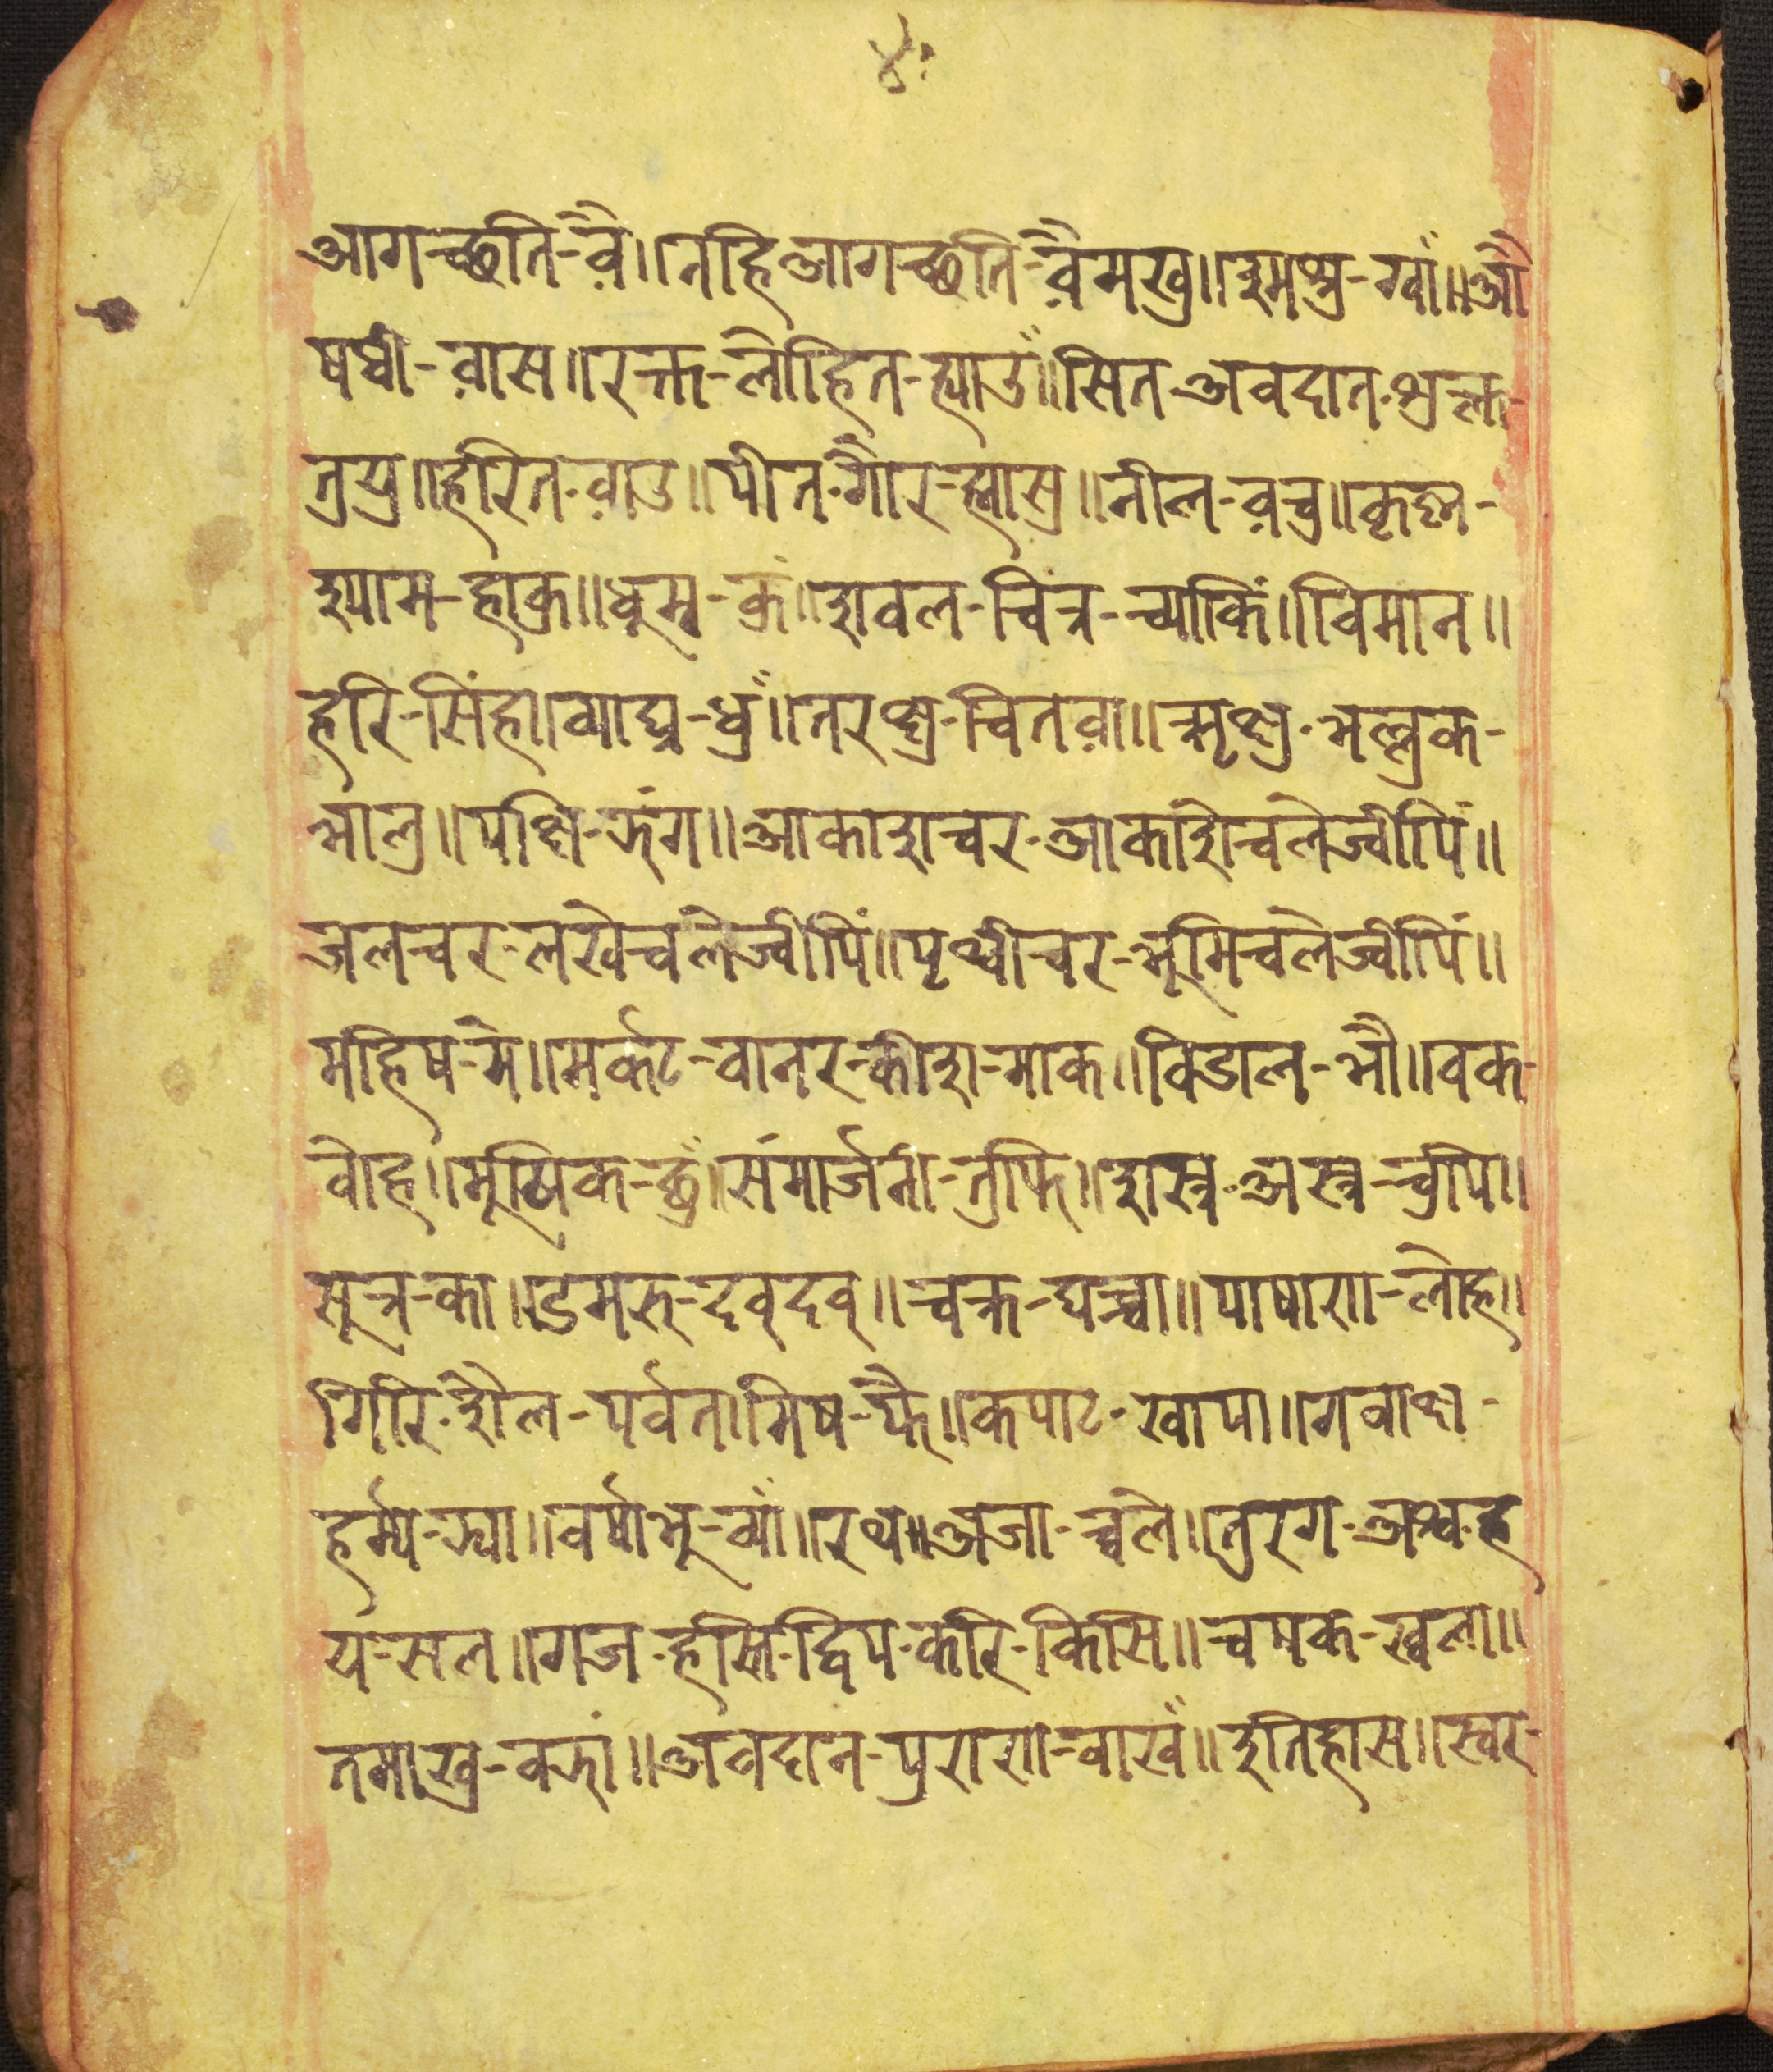 ४
आगच्छति-वै॥नहिआगच्छति-वैमखु॥श्मश्रु-ग्वाँ॥औ
षधी-वास॥रक्त-लोहित-ह्याउँ॥सित-अवदात-शुक्ल-
तुयु॥हरित-वाउ॥पीत-गौर-ह्मासु॥नील-वचु॥कृष्ण-
श्याम-हाकु॥धूम्र-कुं॥शवल-चित्र-च्याकिं॥विमान॥
हरि-सिंह॥व्याघ्र-धुँ॥तरक्षु-चितवा॥ऋक्ष-भल्लुक-
भालु॥पक्षि-झंग॥आकाशचर-आकाशेचलेज्वीपिं॥
जलचर-लखेचलेज्वीपिं॥पृथ्वीचर-भूमिचलेज्वीपिं॥
महिष-मे॥मर्कट-वानर-कीश-माक॥विडाल-भौ॥वक-
वोह॥मूषिक-छुँ॥संमार्जनी-तुफि॥शस्त्र-अस्त्र-चुपि॥
सूत्र-का॥डमरु-दवदव॥चक्र-घच्चा॥पाषाण-लोह॥
गिरि-शैल-पर्वत॥मेष-फै॥कपाट-खापा॥गवाक्ष-
हर्म्य-झ्या॥वर्षाभू-व्यां॥रथ॥अजा-च्वले॥तुरग-अश्व-ह
य-सल॥गज-हस्ति-द्विप-करि-किसि॥चषक-खला॥
तमाखु-वझां॥अवदान-पुराण-वाखँ॥इतिहास॥स्वर-